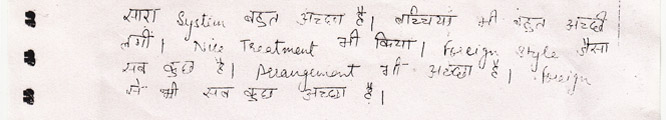 सारा System बहुत अच्छा है। बच्चियां भी बहुत अच्छी
लगीं। Nice Treatment भी किया। Foreign Style जैसा
सब कुछ है। Arrangement भी अच्छा है। Foreign
से भी सब कुछ अच्छा है।